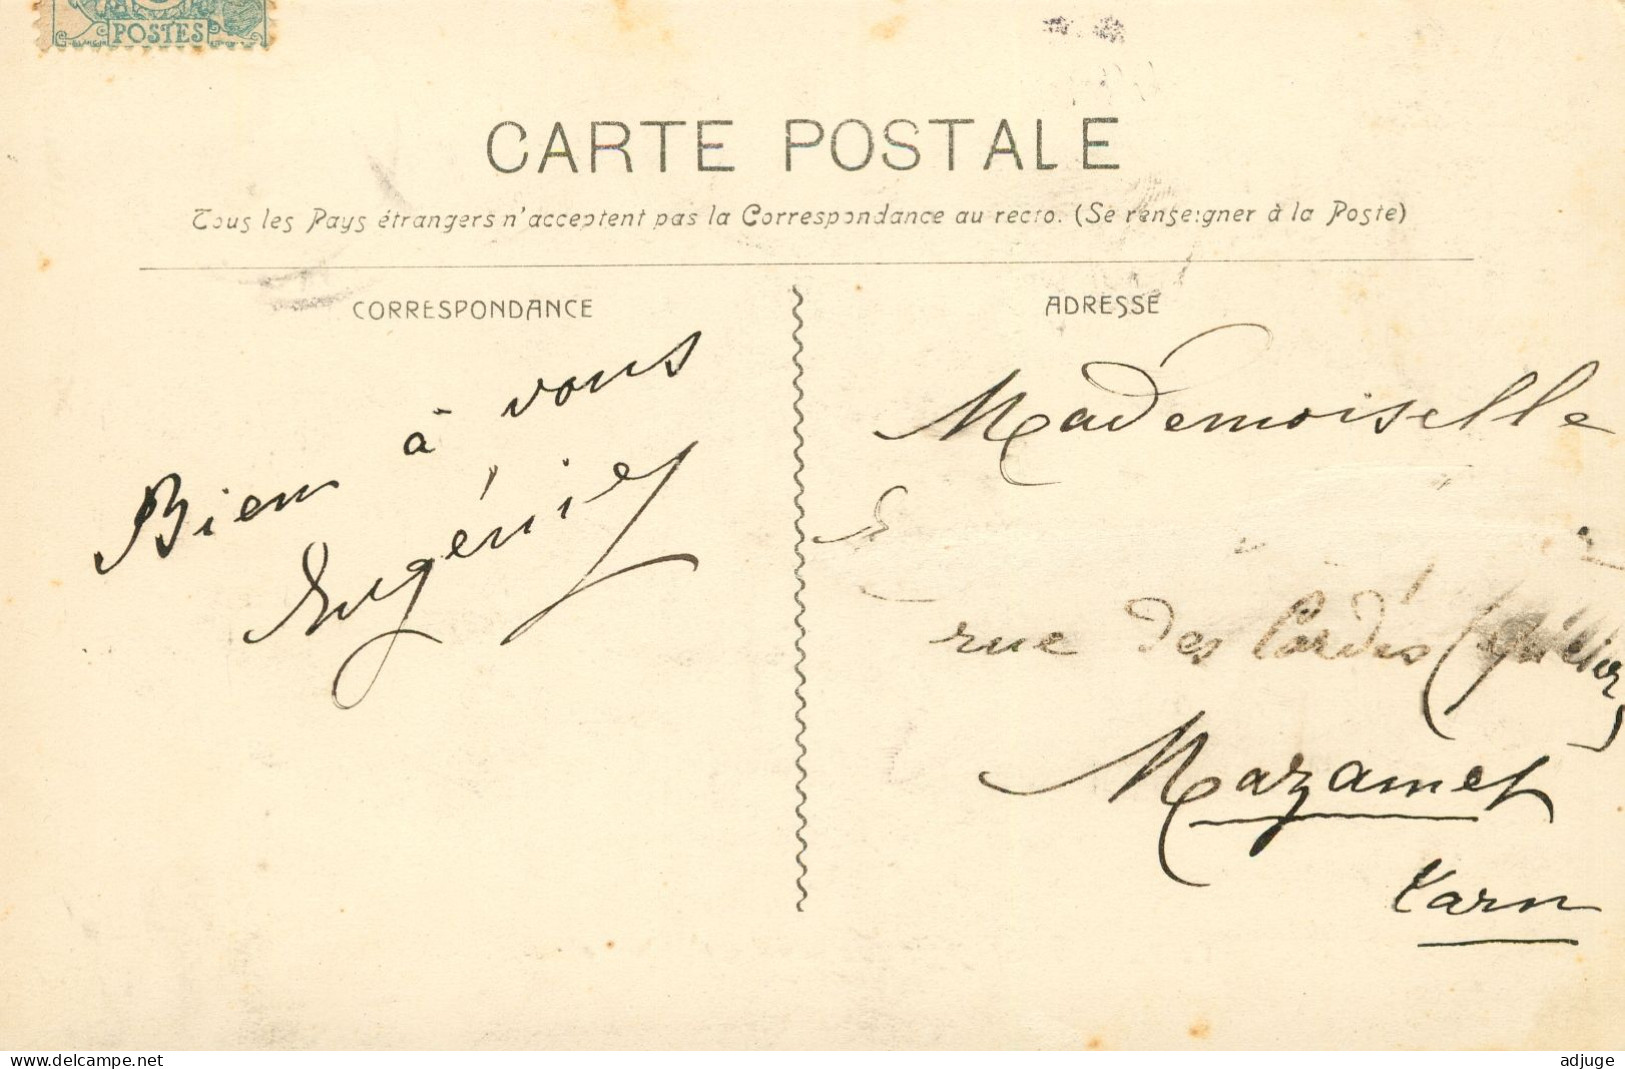 POSTES
CARTE POSTALE
Tous les Pays étrangers n'acceptent pas la Correspondance au recto. (Se renseigner à la Poste)
CORRESPONDANCE
Bien à vous
Eugénie
ADRESSE
Mademoiselle
rue des Cardés
Mazamet
Tarn
www.delcampe.net
adjuge